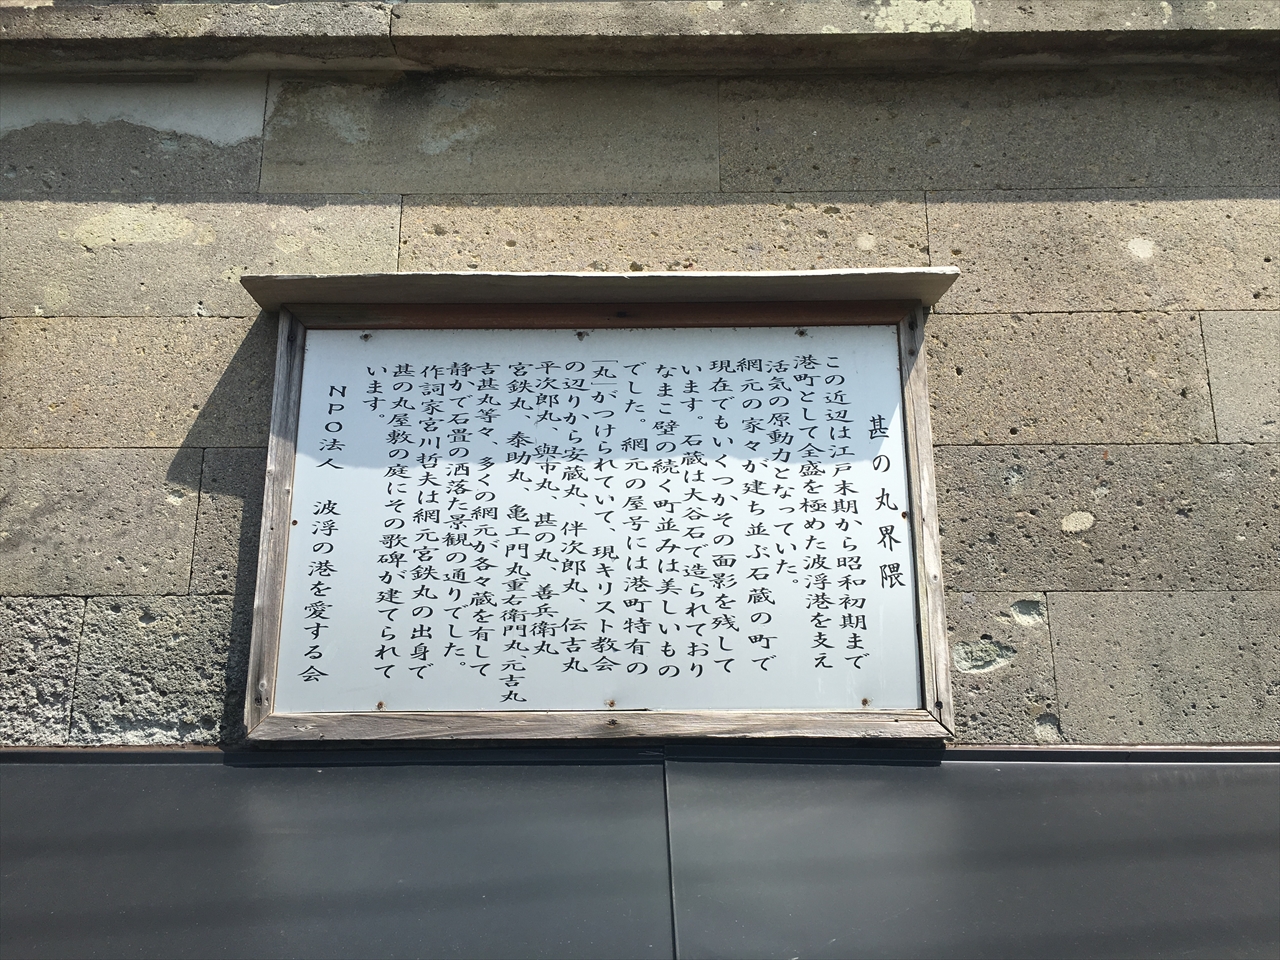 甚の丸界隈
この近辺は江戸末期から昭和初期まで
港町として全盛を極めた波浮港を支え
活気の原動力となっていた。
網元の家々が建ち並ぶ石蔵の町で
現在でもいくつかその面影を残して
います。石蔵は大谷石で造られており
なまこ壁の続く町並みは美しいもの
でした。網元の屋号には港町特有の
「丸」がつけられていて、現キリスト教会
の辺りから安蔵丸、伴次郎丸、伝吉丸
平次郎丸、與市丸、甚の丸、善兵衛丸、
宮鉄丸、泰助丸、亀エ門丸、重右衛門丸、元吉丸
吉甚丸等々、多くの網元が各々蔵を有して
静かで石畳の洒落た景観の通りでした。
作詞家宮川哲夫は網元宮鉄丸の出身で
甚の丸屋敷の庭にその歌碑が建てられて
います。
NPO法人　波浮の港を愛する会